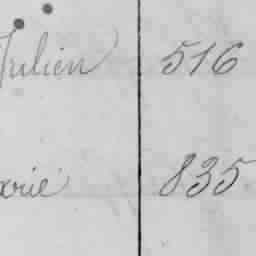 Julien 516
835